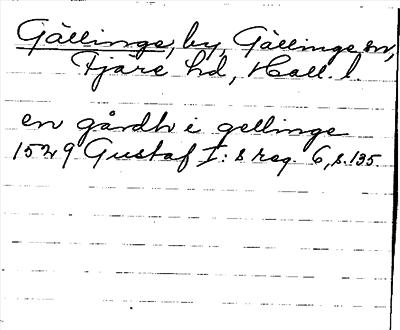 Gällinge, by, Gällinge sn,
Fjäre hd, Hall. l.
en gårdh i gellinge
1529 Gustaf I: s reg. 6, s. 135